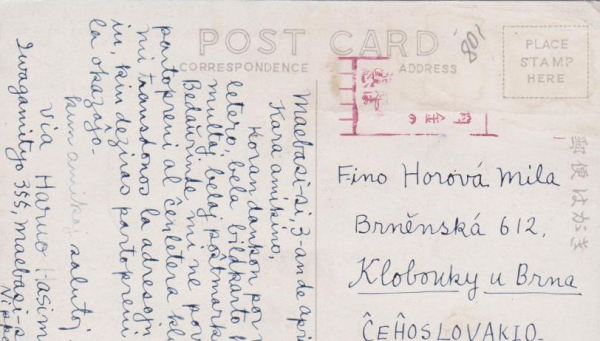 POST CARD
CORRESPONDENCE
ADDRESS
801
PLACE
STAMP
HERE
郵便はがき
Maebasi-si, 3-an de apri
Kara amikino,
Koran dankon por
letero, bela bildkarto k
multaj belaj poŝtmark
Bedaŭrinde mi ne pov
partopreni al ĉenletera klu
mi transdonos la adresojn
iu, kiu deziras partopreni
la okazaĵo.
kun amikaj salutoj
Via Haruo Hasim
Iwagamityo 355, Maebasi-s
Nippo
Fino Horová Mila
Brněnská 612,
Klobouky u Brna
ĈEĤOSLOVAKIO.